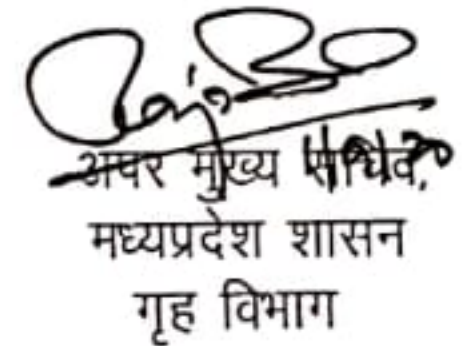 अपर मुख्य सचिव,
मध्यप्रदेश शासन
गृह विभाग